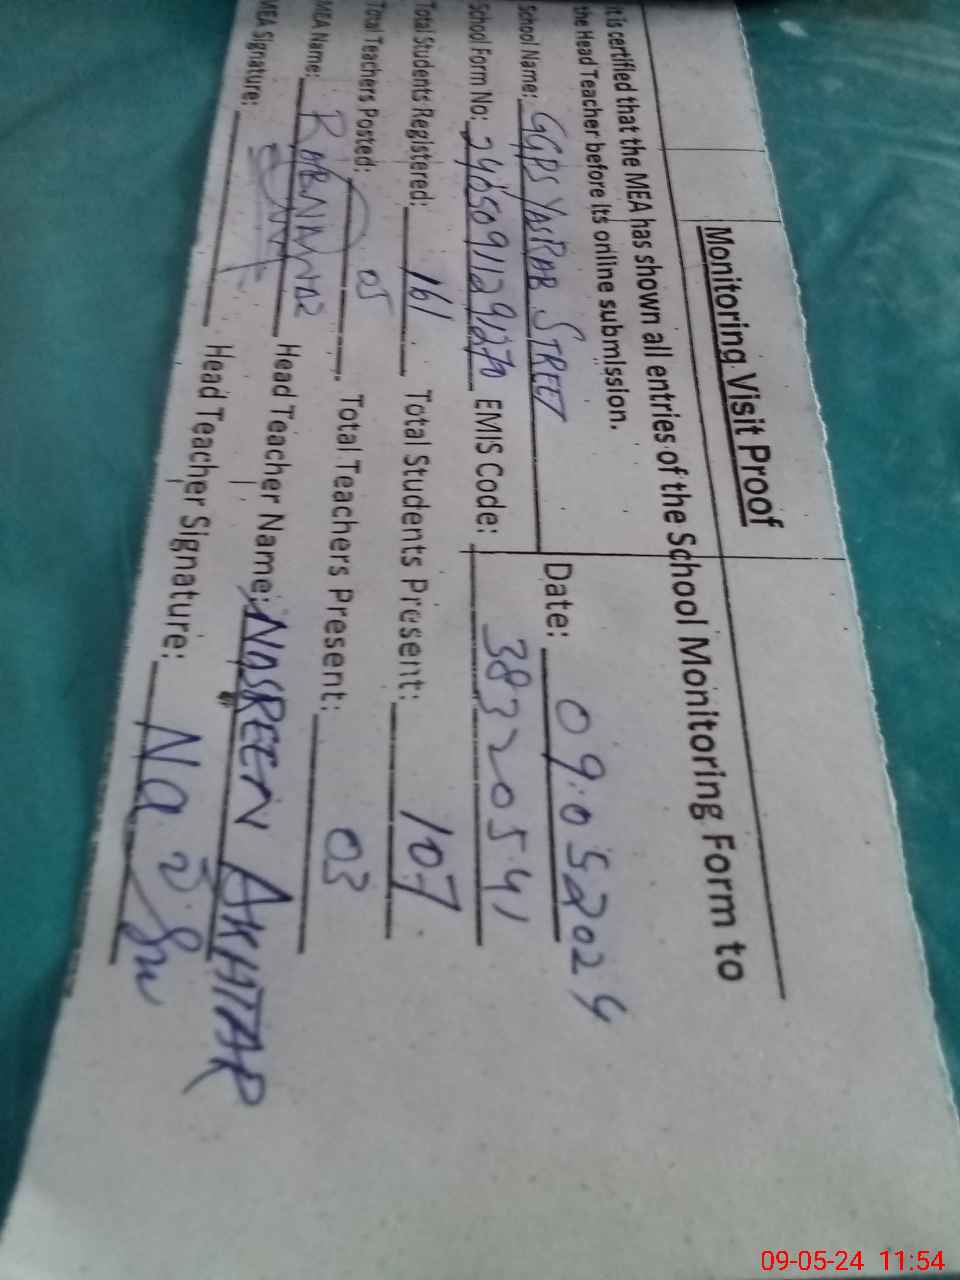 Monitoring Visit Proof
It is certified that the MEA has shown all entries of the School Monitoring Form to
the Head Teacher before its online submission.
Date: 09.05.2024
School Name: GGPS YASRAB STREET
School Form No: EMIS Code: 38320541
Total Students Registered: 161 Total Students Present: 107
Total Teachers Posted: 05 Total Teachers Present: 03
MEA Name: Head Teacher Name: NASREEN AKHTAR
MEA Signature: Head Teacher Signature:
09-05-24 11:54